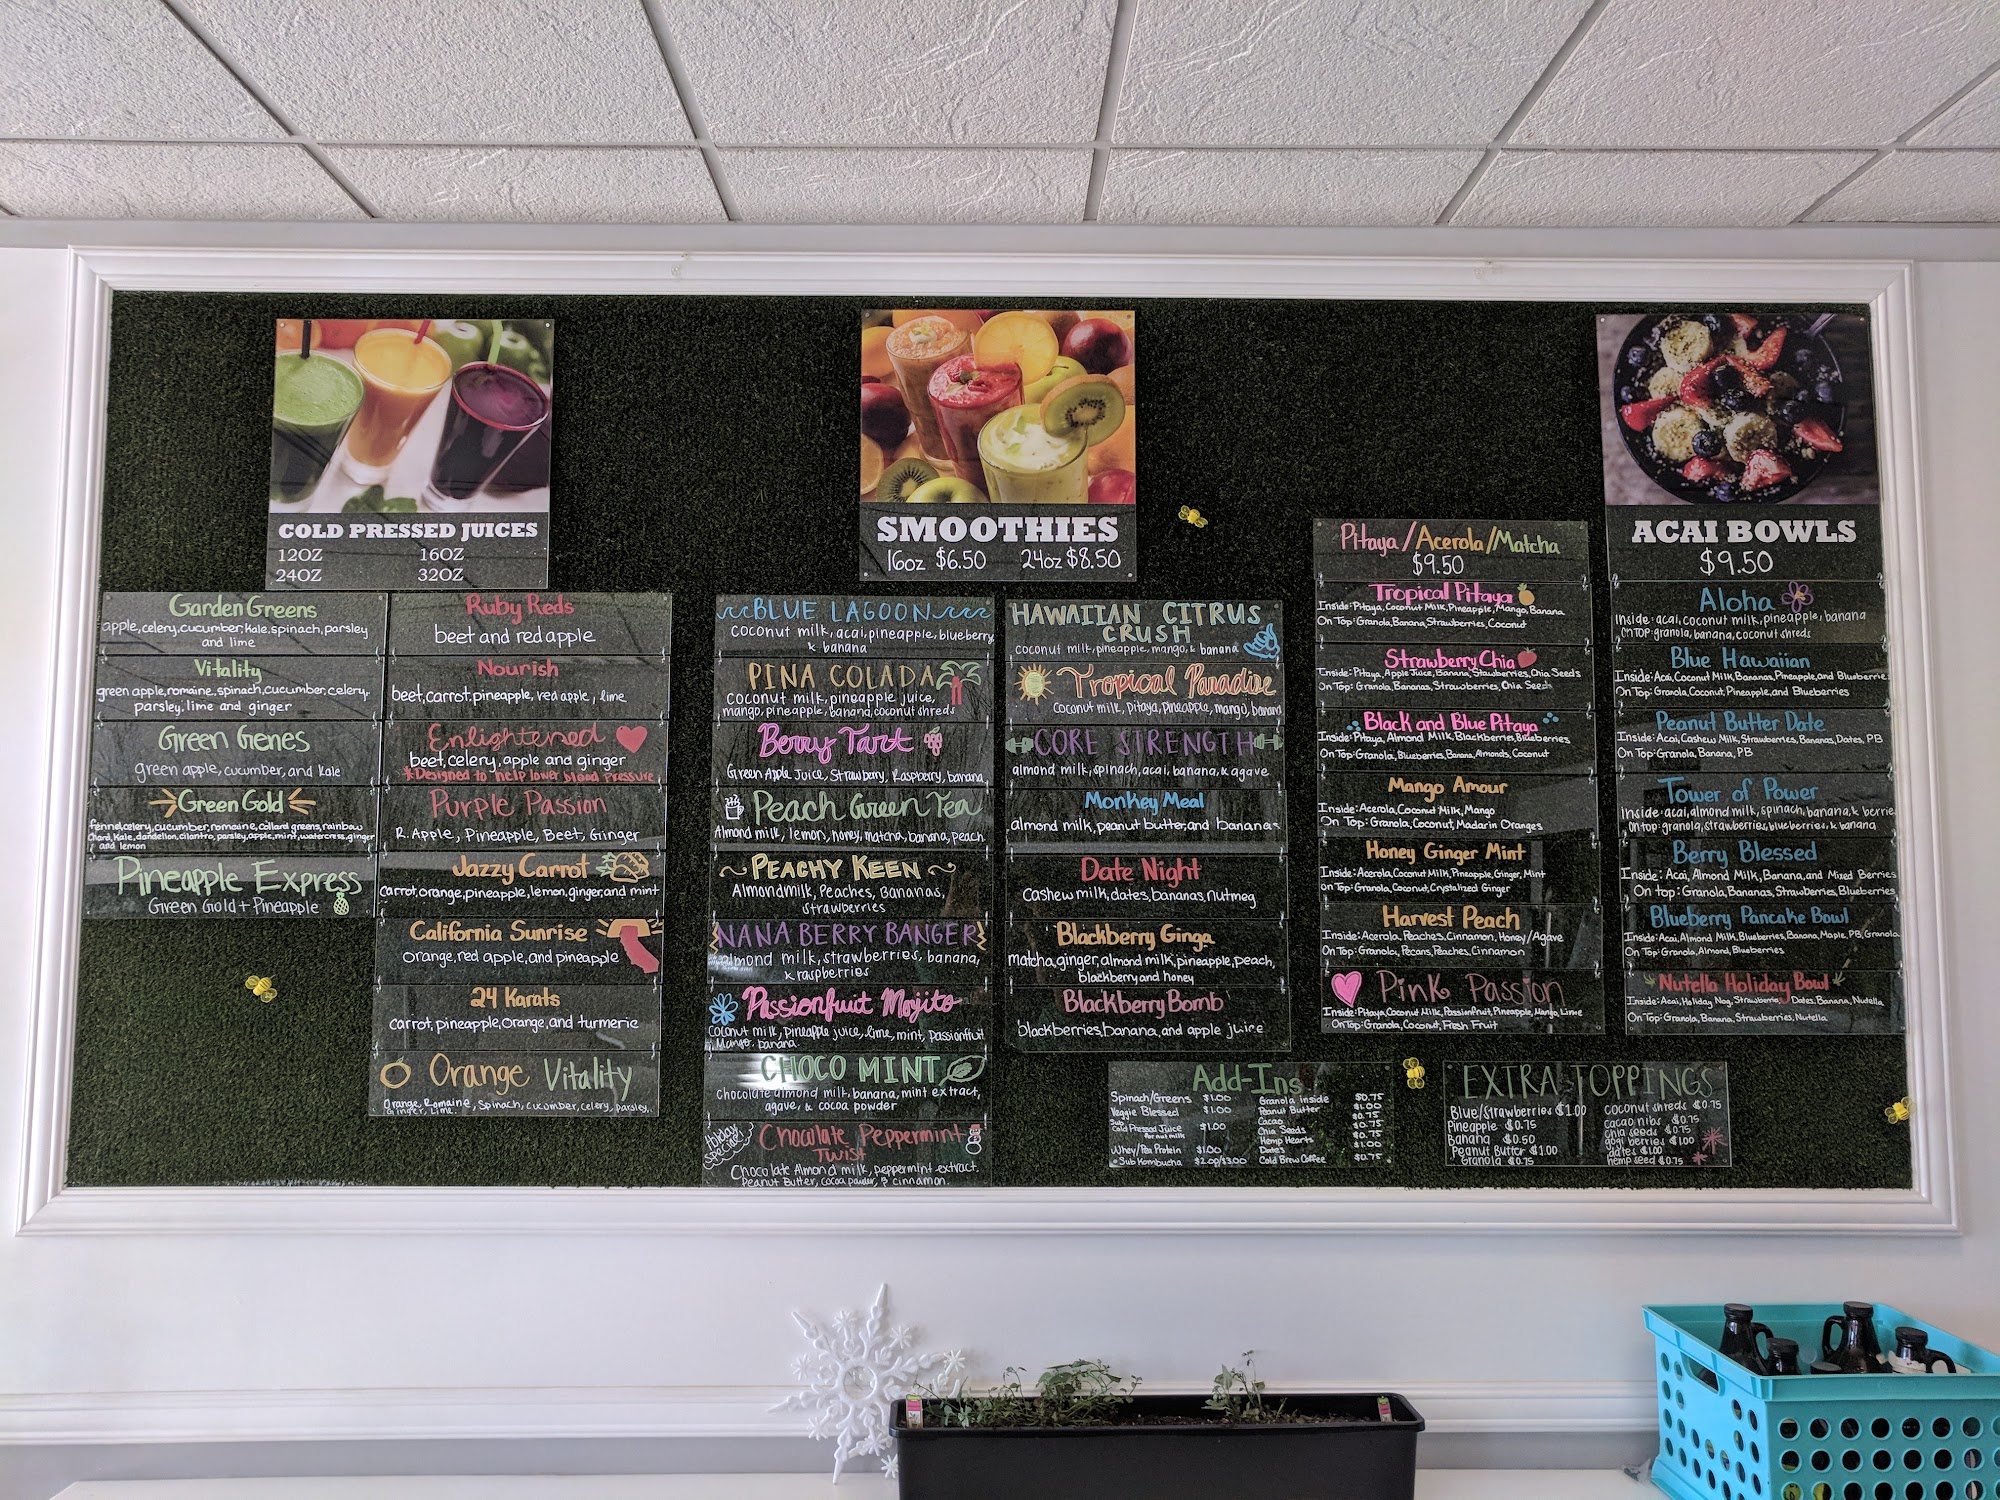 COLD PRESSED JUICES
12OZ 16OZ
24OZ 32OZ
Garden Greens
apple, celery, cucumber, kale, spinach, parsley
and lime
Vitality
green apple, romaine, spinach, cucumber, celery,
parsley, lime and ginger
Green Genes
green apple, cucumber, and kale
Green Gold
fennel, celery, cucumber, romaine, collard greens, rainbow
chard, kale, dandelion, cilantro, parsley, apple, mint, watercress, ginger
and lemon
Pineapple Express
Green Gold + Pineapple
Ruby Reds
beet and red apple
Nourish
beet, carrot, pineapple, red apple, lime
Enlightened
beet, celery, apple and ginger
*Designed to help lower blood pressure
Purple Passion
R. Apple, Pineapple, Beet, Ginger
Jazzy Carrot
carrot, orange, pineapple, lemon, ginger, and mint
California Sunrise
orange, red apple, and pineapple
24 Karats
carrot, pineapple, orange, and turmeric
Orange Vitality
Orange, Romaine, Spinach, cucumber, celery, parsley,
Ginger, Lime.
SMOOTHIES
16oz $6.50 24oz $8.50
BLUE LAGOON
coconut milk, acai, pineapple, blueberry
& banana
PINA COLADA
coconut milk, pineapple juice,
mango, pineapple, banana, coconut shreds
Berry Tart
Green Apple Juice, Strawberry, Raspberry, banana,
Peach Green Tea
Almond milk, lemon, honey, matcha, banana, peach
PEACHY KEEN
Almondmilk, Peaches, Bananas,
strawberries
NANA BERRY BANGER
almond milk, strawberries, banana,
& raspberries
Passionfruit Mojito
Coconut milk, pineapple juice, lime, mint, passionfruit
Mango, banana
CHOCO MINT
chocolate almond milk, banana, mint extract,
agave, & cocoa powder
Holiday
Special
Chocolate Peppermint
Twist
Chocolate Almond milk, peppermint extract,
Peanut Butter, cocoa powder, & cinnamon.
HAWAIIAN CITRUS
CRUSH
coconut milk, pineapple, mango, & banana
Tropical Paradise
Coconut milk, pitaya, pineapple, mango, banana
CORE STRENGTH
almond milk, spinach, acai, banana, & agave
Monkey Meal
almond milk, peanut butter, and bananas
Date Night
Cashew milk, dates, bananas, nutmeg
Blackberry Ginga
matcha, ginger, almond milk, pineapple, peach,
blackberry and honey
Blackberry Bomb
blackberries, banana, and apple juice
Pitaya/Acerola/Matcha
$9.50
Tropical Pitaya
Inside: Pitaya, Coconut Milk, Pineapple, Mango, Banana
On Top: Granola, Banana, Strawberries, Coconut
Strawberry Chia
Inside: Pitaya, Apple Juice, Banana, Strawberries, Chia Seeds
On Top: Granola, Bananas, Strawberries, Chia Seeds
Black and Blue Pitaya
Inside: Pitaya, Almond Milk, Blackberries, Blueberries
On Top: Granola, Blueberries, Banana, Almonds, Coconut
Mango Amour
Inside: Acerola, Coconut Milk, Mango
On Top: Granola, Coconut, Madarin Oranges
Honey Ginger Mint
Inside: Acerola, Coconut Milk, Pineapple, Ginger, Mint
On Top: Granola, Coconut, Crystalized Ginger
Harvest Peach
Inside: Acerola, Peaches, Cinnamon, Honey/Agave
On Top: Granola, Pecans, Peaches, Cinnamon
Pink Passion
Inside: Pitaya, Coconut Milk, Passionfruit, Pineapple, Mango, Lime
On Top: Granola, Coconut, Fresh Fruit
ACAI BOWLS
$9.50
Aloha
Inside: acai, coconut milk, pineapple, banana
On Top: granola, banana, coconut shreds
Blue Hawaiian
Inside: Acai, Coconut Milk, Bananas, Pineapple, and Blueberries
On Top: Granola, Coconut, Pineapple, and Blueberries
Peanut Butter Date
Inside: Acai, Cashew Milk, Strawberries, Bananas, Dates, PB
On Top: Granola, Banana, PB
Tower of Power
Inside: acai, almond milk, spinach, banana, & berries
On top: granola, strawberries, blueberries, & banana
Berry Blessed
Inside: Acai, Almond Milk, Banana, and Mixed Berries
On top: Granola, Bananas, Strawberries, Blueberries
Blueberry Pancake Bowl
Inside: Acai, Almond Milk, Blueberries, Banana, Maple, PB, Granola
On Top: Granola, Almond, Blueberries
Nutella Holiday Bowl
Inside: Acai, Holiday Nog, Strawberry, Dates, Banana, Nutella
On Top: Granola, Banana, Strawberries, Nutella
Add-Ins
Spinach/Greens $1.00
Veggie Blessed $1.00
Sub
Cold Pressed Juice $1.00
for nut milk
Whey/Pea Protein $1.00
Sub Kombucha $2.00/$3.00
Granola inside $0.75
Peanut Butter $1.00
Cacao $0.75
Chia Seeds $0.75
Hemp Hearts $0.75
Dates $1.00
Cold Brew Coffee $0.75
EXTRA TOPPINGS
Blue/Strawberries $1.00
Pineapple $0.75
Banana $0.50
Peanut Butter $1.00
Granola $0.75
coconut shreds $0.75
cacao nibs $0.75
chia seeds $0.75
gogi berries $1.00
dates $1.00
hemp seed $0.75